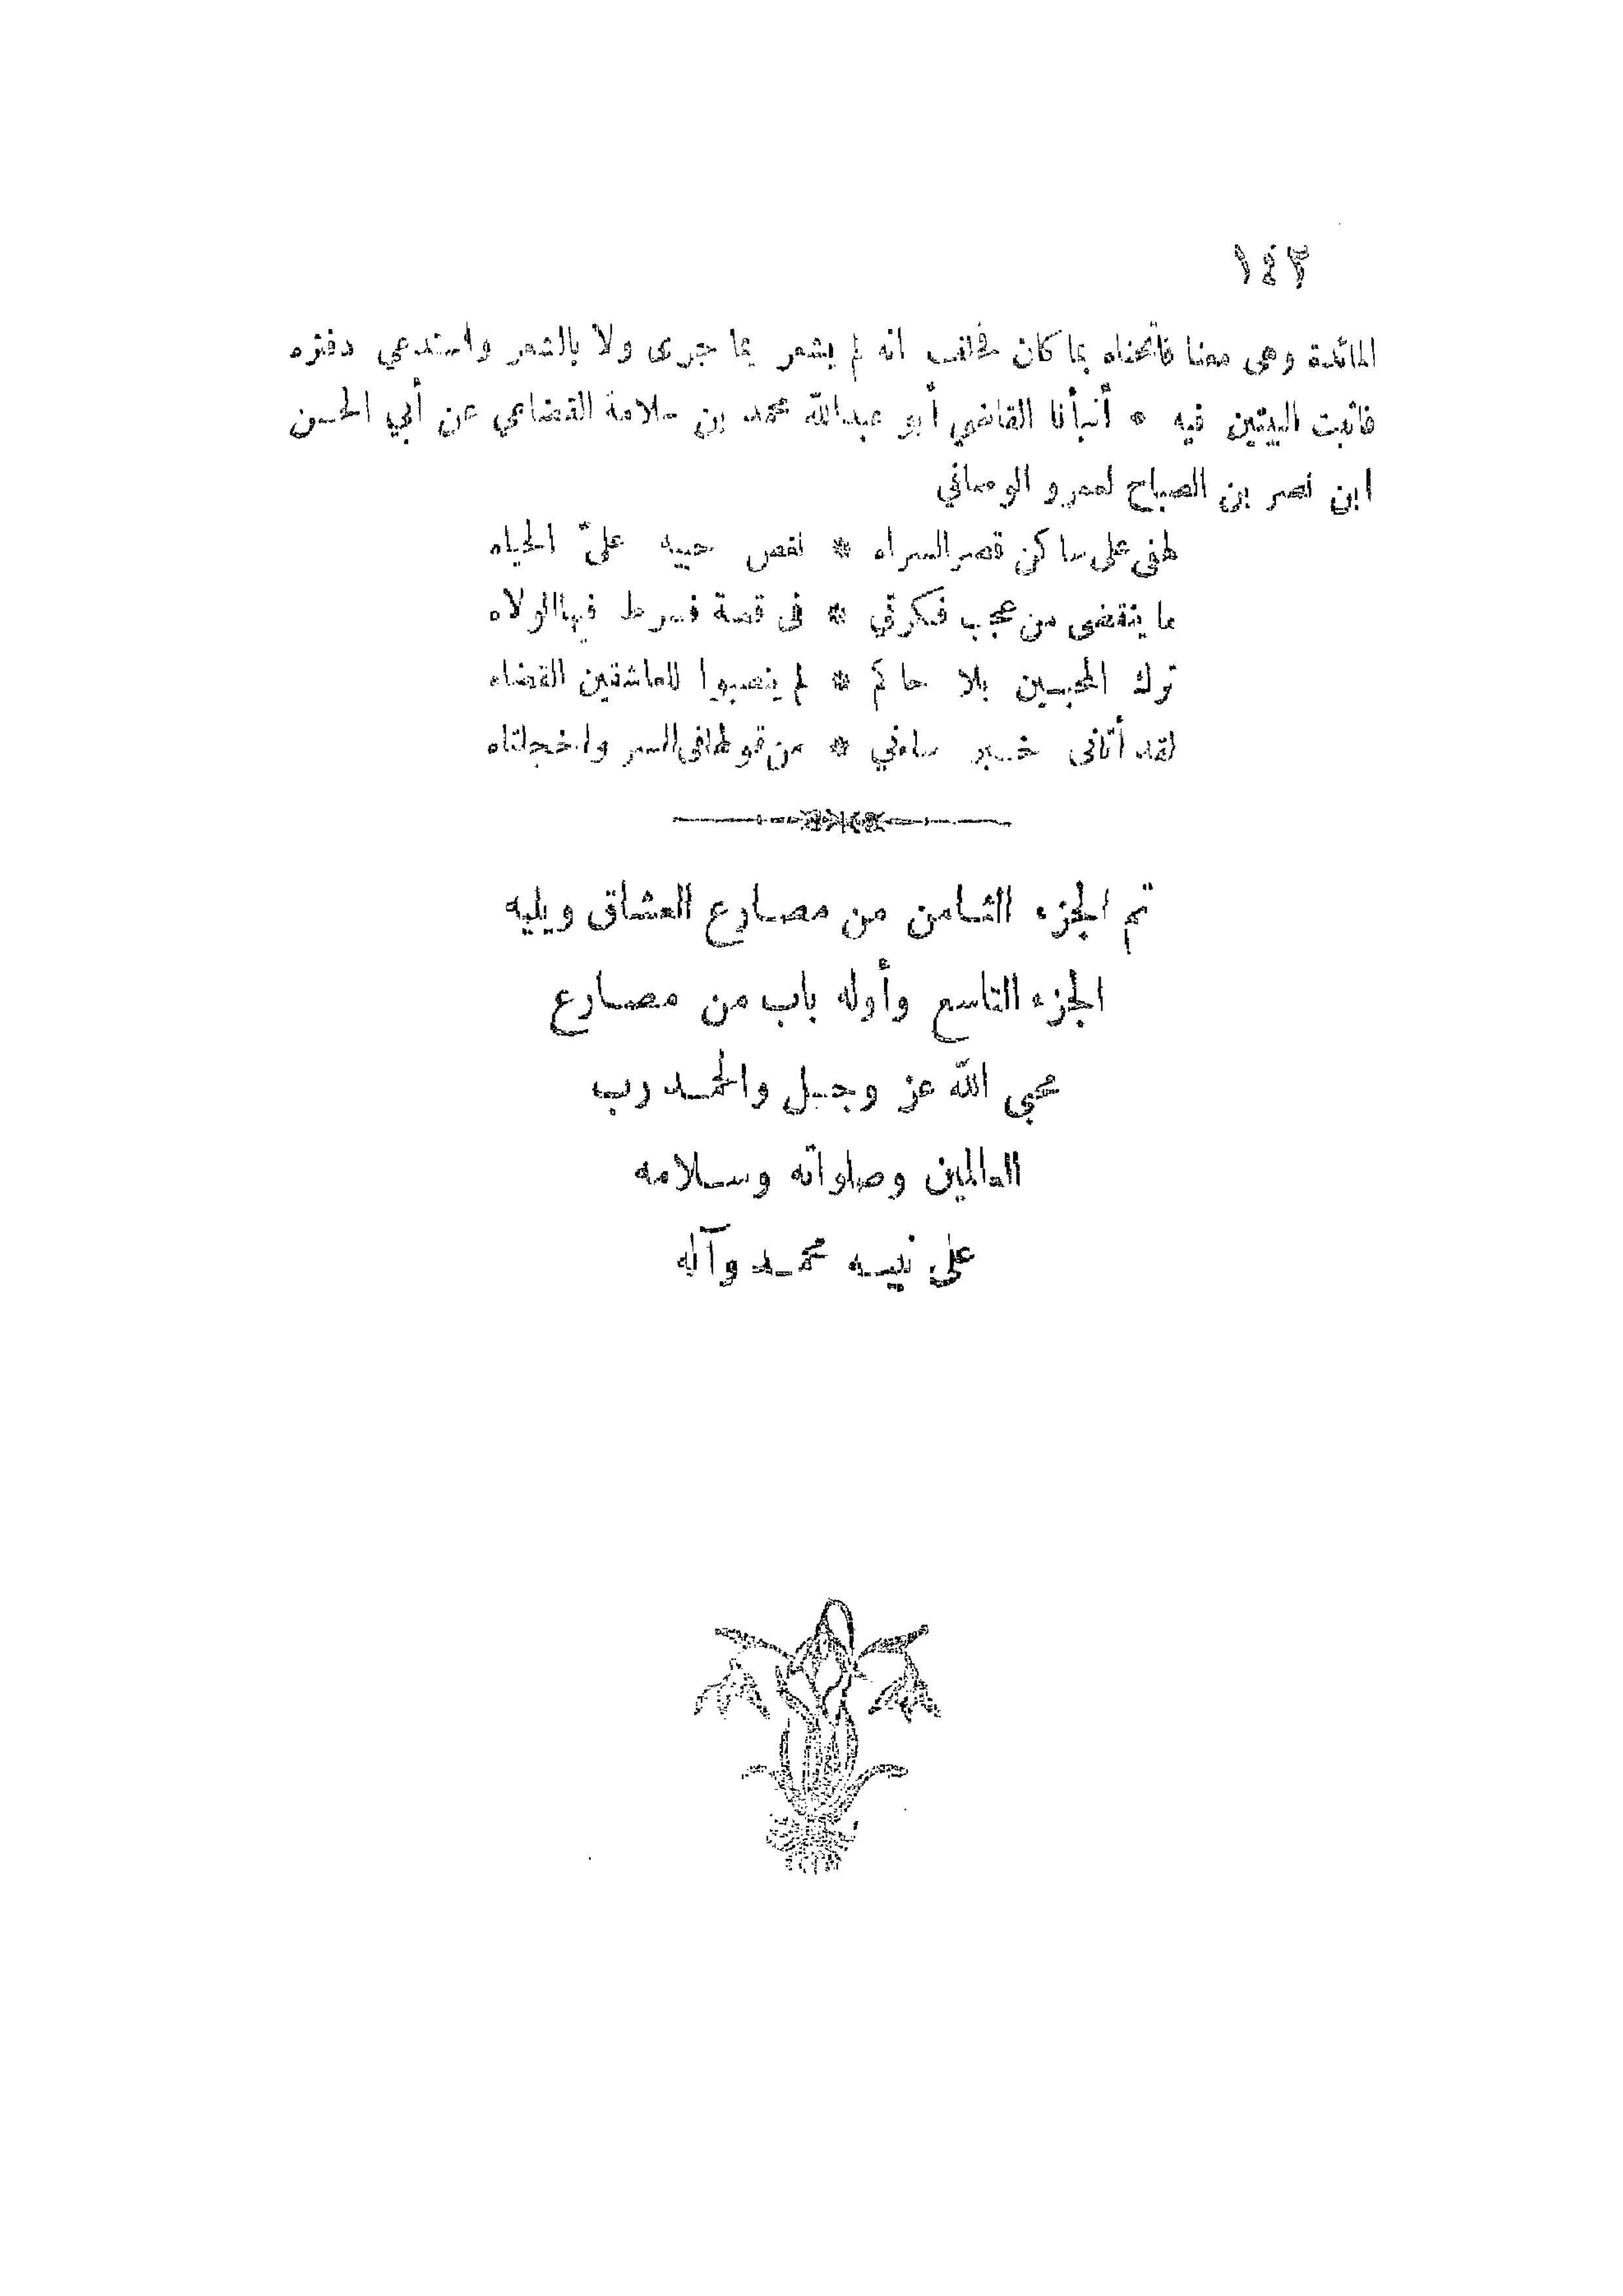 ١٤٣
المائدة وهى معنا فاتحفناه بما كان فحلف انه لم يشعر بما جرى ولا بالشعر واستدعي دفتره
فاثبت البيتين فيه * أنبأنا القاضي أبو عبدالله محمد بن سلامة القضاعي عن أبي الحسن
ابن نصر بن الصباح لعمرو الوصافي
لهفى على ساكن قصر السراه * نغص حبيه علىّ الحياه
ما ينقضى من عجب فكرتي * فى قصة فرط فيها الولاه
ترك المحبين بلا حاكم * لم ينصبوا للعاشقين القضاه
لقد أتانى خبر ساءني * من قولها فى السر واخجلتاه
تم الجزء الثامن من مصارع العشاق ويليه
الجزء التاسع وأوله باب من مصارع
محبي الله عز وجل والحمد رب
العالمين وصلواته وسلامه
على نبيه محمد وآله